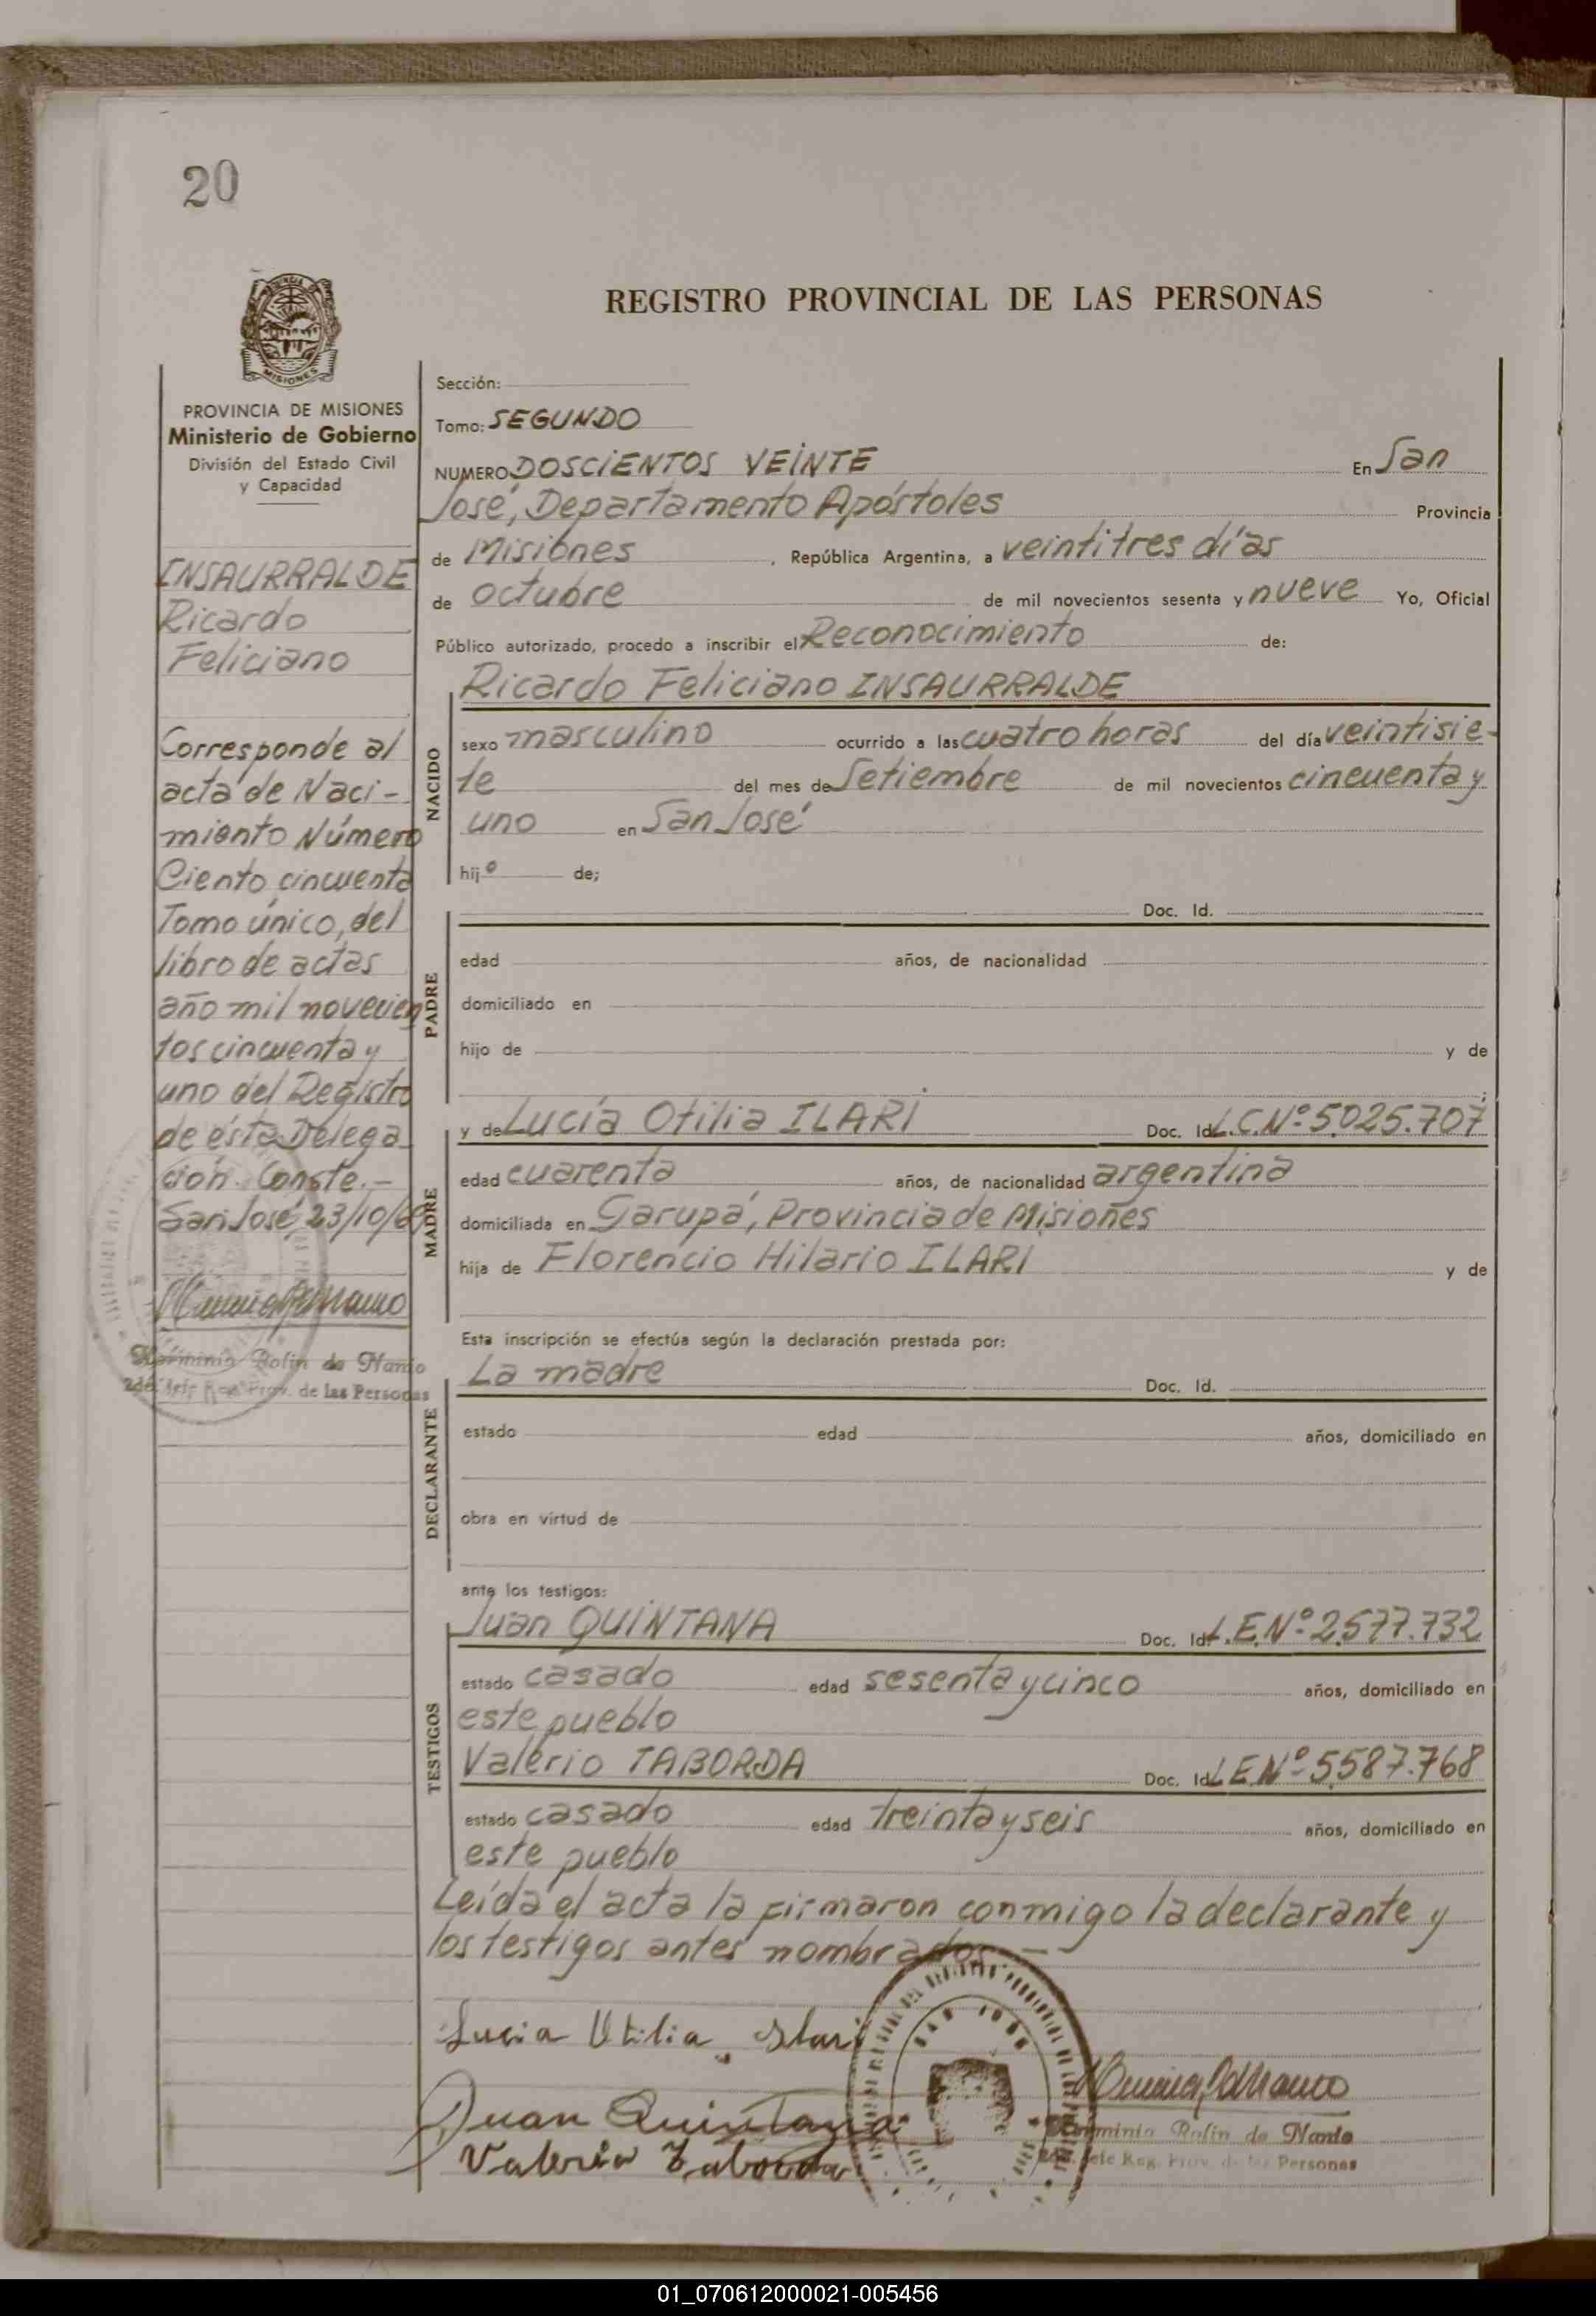 20
REGISTRO PROVINCIAL DE LAS PERSONAS
MISIONES
PROVINCIA DE MISIONES
Ministerio de Gobierno
División del Estado Civil
y Capacidad
INSAURRALDE
Ricardo
Feliciano
Corresponde al
acta de Naci-
miento Número
Ciento cincuenta
Tomo único, del
libro de actas
año mil novecien
tos cincuenta y
uno del Registro
de ésta Delega
ción. Conste.-
San José, 23/10/69
Herminia Rolin de Nanto
Reg. Prov. de las Personas
Sección:
Tomo: SEGUNDO
NUMERO DOSCIENTOS VEINTE En San
José, Departamento Apóstoles Provincia
de Misiones, República Argentina, a veintitres días
de octubre de mil novecientos sesenta y nueve Yo, Oficial
Público autorizado, procedo a inscribir el Reconocimiento de:
Ricardo Feliciano INSAURRALDE
NACIDO
sexo masculino ocurrido a las cuatro horas del día veintisie-
te del mes de Setiembre de mil novecientos cincuenta y
uno en San José
hijo de;
PADRE
Doc. Id.
edad años, de nacionalidad
domiciliado en
hijo de y de
MADRE
y de Lucía Otilia ILARI Doc. Id. L.C.Nº 5.025.707
edad cuarenta años, de nacionalidad argentina
domiciliada en Garupá, Provincia de Misiones
hija de Florencio Hilario ILARI y de
Esta inscripción se efectúa según la declaración prestada por:
DECLARANTE
La madre Doc. Id.
estado edad años, domiciliado en
obra en virtud de
ante los testigos:
TESTIGOS
Juan QUINTANA Doc. Id. L.E.Nº 2.577.732
estado casado edad sesenta y cinco años, domiciliado en
este pueblo
Valerio TABORDA Doc. Id. L.E.Nº 5.587.768
estado casado edad treinta y seis años, domiciliado en
este pueblo
Leída el acta la firmaron conmigo la declarante y
los testigos antes nombrados.-
Lucia Utilia Ilari
Juan Quintana
Valerio Taborda
Herminia Rolin de Nanto
Jefe Reg. Prov. de las Personas
01_070612000021-005456